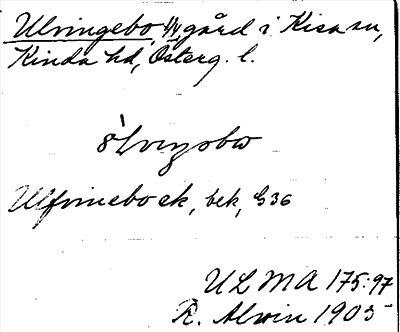 Ulvringebo, 1/4, gård i Kisa sn,
Kinda hd, Österg. l.
Ulfrinebo ek, bek, G36
ULMA 175:97
R. Alwin 1905